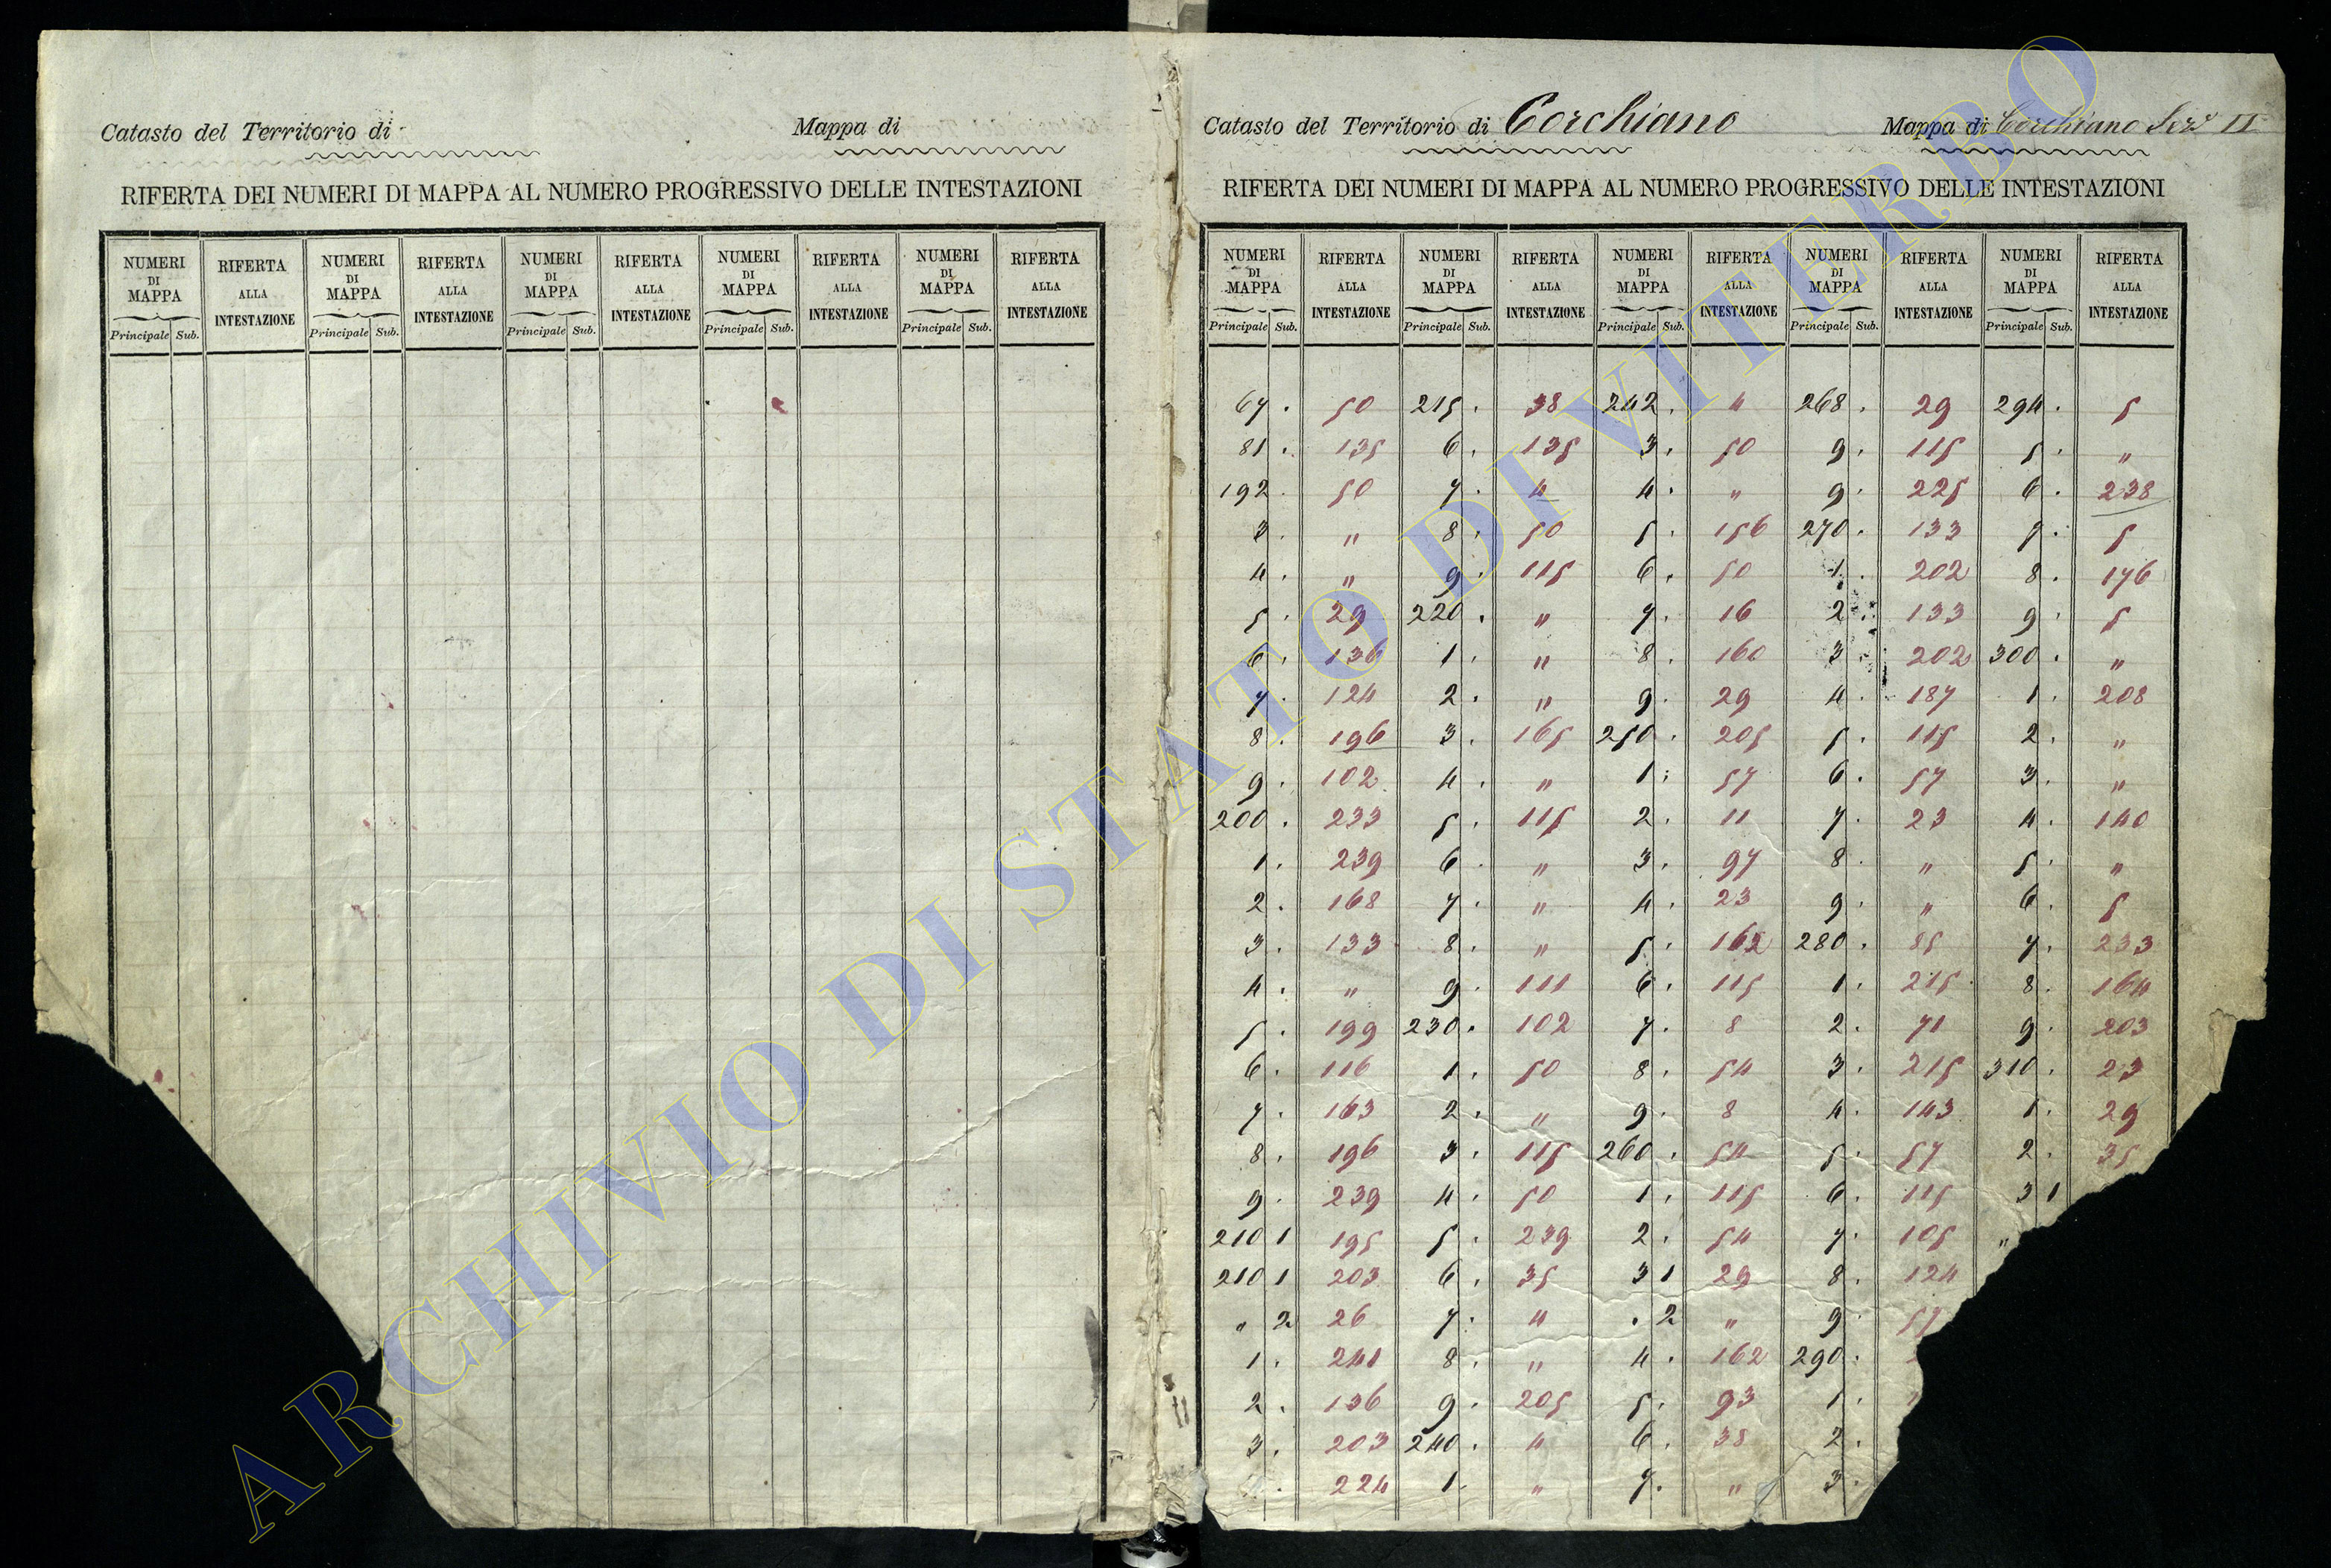 Catasto del Territorio di Mappa di
RIFERTA DEI NUMERI DI MAPPA AL NUMERO PROGRESSIVO DELLE INTESTAZIONI
NUMERI DI MAPPA RIFERTA ALLA INTESTAZIONE NUMERI DI MAPPA RIFERTA ALLA INTESTAZIONE NUMERI DI MAPPA RIFERTA ALLA INTESTAZIONE NUMERI DI MAPPA RIFERTA ALLA INTESTAZIONE NUMERI DI MAPPA RIFERTA ALLA INTESTAZIONE
Principale Sub. Principale Sub. Principale Sub. Principale Sub. Principale Sub.
Catasto del Territorio di Corchiano Mappa di Corchiano Sez. II
RIFERTA DEI NUMERI DI MAPPA AL NUMERO PROGRESSIVO DELLE INTESTAZIONI
NUMERI DI MAPPA RIFERTA ALLA INTESTAZIONE NUMERI DI MAPPA RIFERTA ALLA INTESTAZIONE NUMERI DI MAPPA RIFERTA ALLA INTESTAZIONE NUMERI DI MAPPA RIFERTA ALLA INTESTAZIONE NUMERI DI MAPPA RIFERTA ALLA INTESTAZIONE
Principale Sub. Principale Sub. Principale Sub. Principale Sub. Principale Sub.
67 . 50 215 . 38 242 . 4 268 . 29 294 . 5
81 . 135 6 . 135 3 . 50 9 . 115 5 . "
192 . 50 7 . 4 4 . " 9 . 225 6 . 238
3 . " 8 . 50 5 . 156 270 . 133 7 . 5
4 . " 9 . 115 6 . 50 1 . 202 8 . 176
5 . 29 220 . " 7 . 16 2 . 133 9 . 5
6 . 136 1 . " 8 . 160 3 . 202 300 . "
7 . 124 2 . " 9 . 29 4 . 187 1 . 208
8 . 196 3 . 165 250 . 205 5 . 115 2 . "
9 . 102 4 . " 1 . 57 6 . 57 3 . "
200 . 233 5 . 115 2 . 11 7 . 23 4 . 140
1 . 239 6 . " 3 . 97 8 . " 5 . "
2 . 168 7 . " 4 . 23 9 . " 6 . 5
3 . 133 8 . " 5 . 162 280 . 85 7 . 233
4 . " 9 . 111 6 . 115 1 . 215 8 . 164
5 . 199 230 . 102 7 . 8 2 . 71 9 . 203
6 . 116 1 . 50 8 . 54 3 . 215 310 . 23
7 . 163 2 . " 9 . 8 4 . 143 1 . 29
8 . 196 3 . 115 260 . 54 5 . 57 2 . 35
9 . 239 4 . 50 1 . 115 6 . 115 3 1
210 1 195 5 . 239 2 . 54 7 . 105 "
210 1 203 6 . 35 3 1 29 8 . 124
" 2 26 7 . 4 . 2 " 9 . 57
1 . 241 8 . " 4 . 162 290 .
2 . 136 9 . 205 5 . 93 1 .
3 . 203 240 . 4 6 . 38 2 .
. 224 1 . " 7 . " 3 .
ARCHIVIO DI STATO DI VITERBO